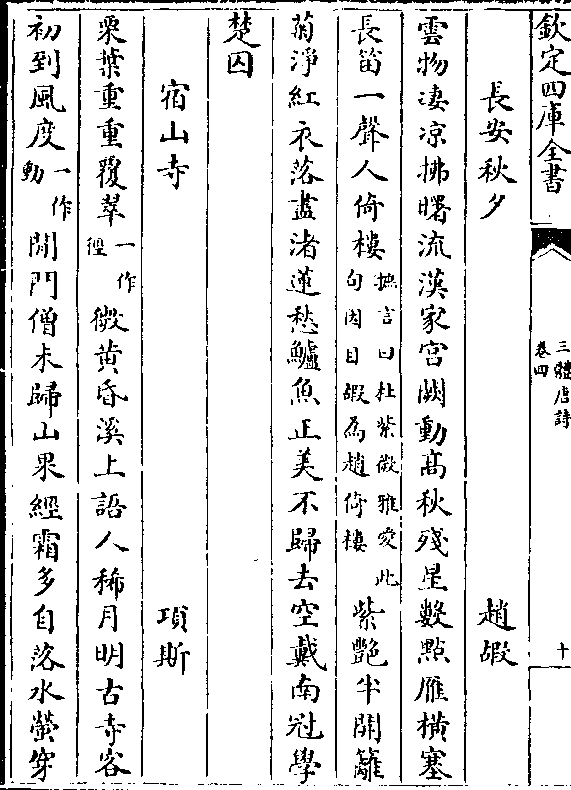 欽定四庫全書
三體唐詩
卷四
十
長安秋夕
趙嘏
雲物淒涼拂曙流漢家宫闕動髙秋殘星數㸃雁横塞
長笛一聲人倚樓摭言曰杜紫微雅愛此句因目嘏為趙倚樓紫艷半開籬
菊淨紅衣落盡渚蓮愁鱸魚正美不歸去空戴南冠學
楚囚
宿山寺
項斯
栗葉重重覆翠一作徑微黄昏溪上語人稀月明古寺客
初到風度一作動閒門僧未歸山果經霜多自落水螢穿